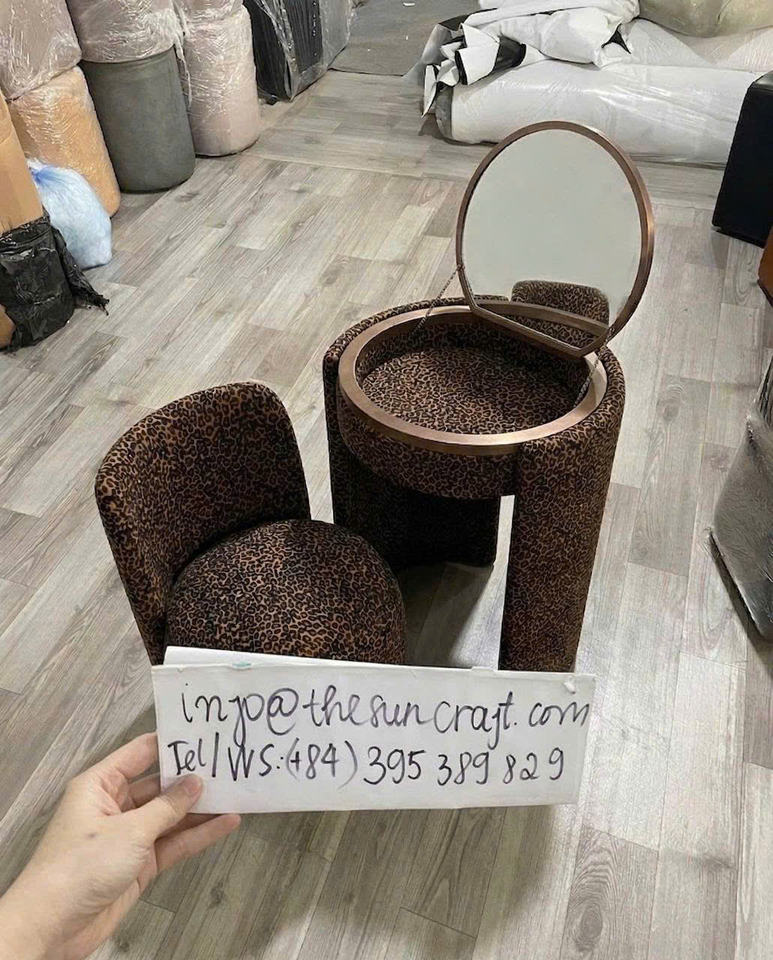 info@thesuncraft.com
Tel/WS:(+84) 395 389 829